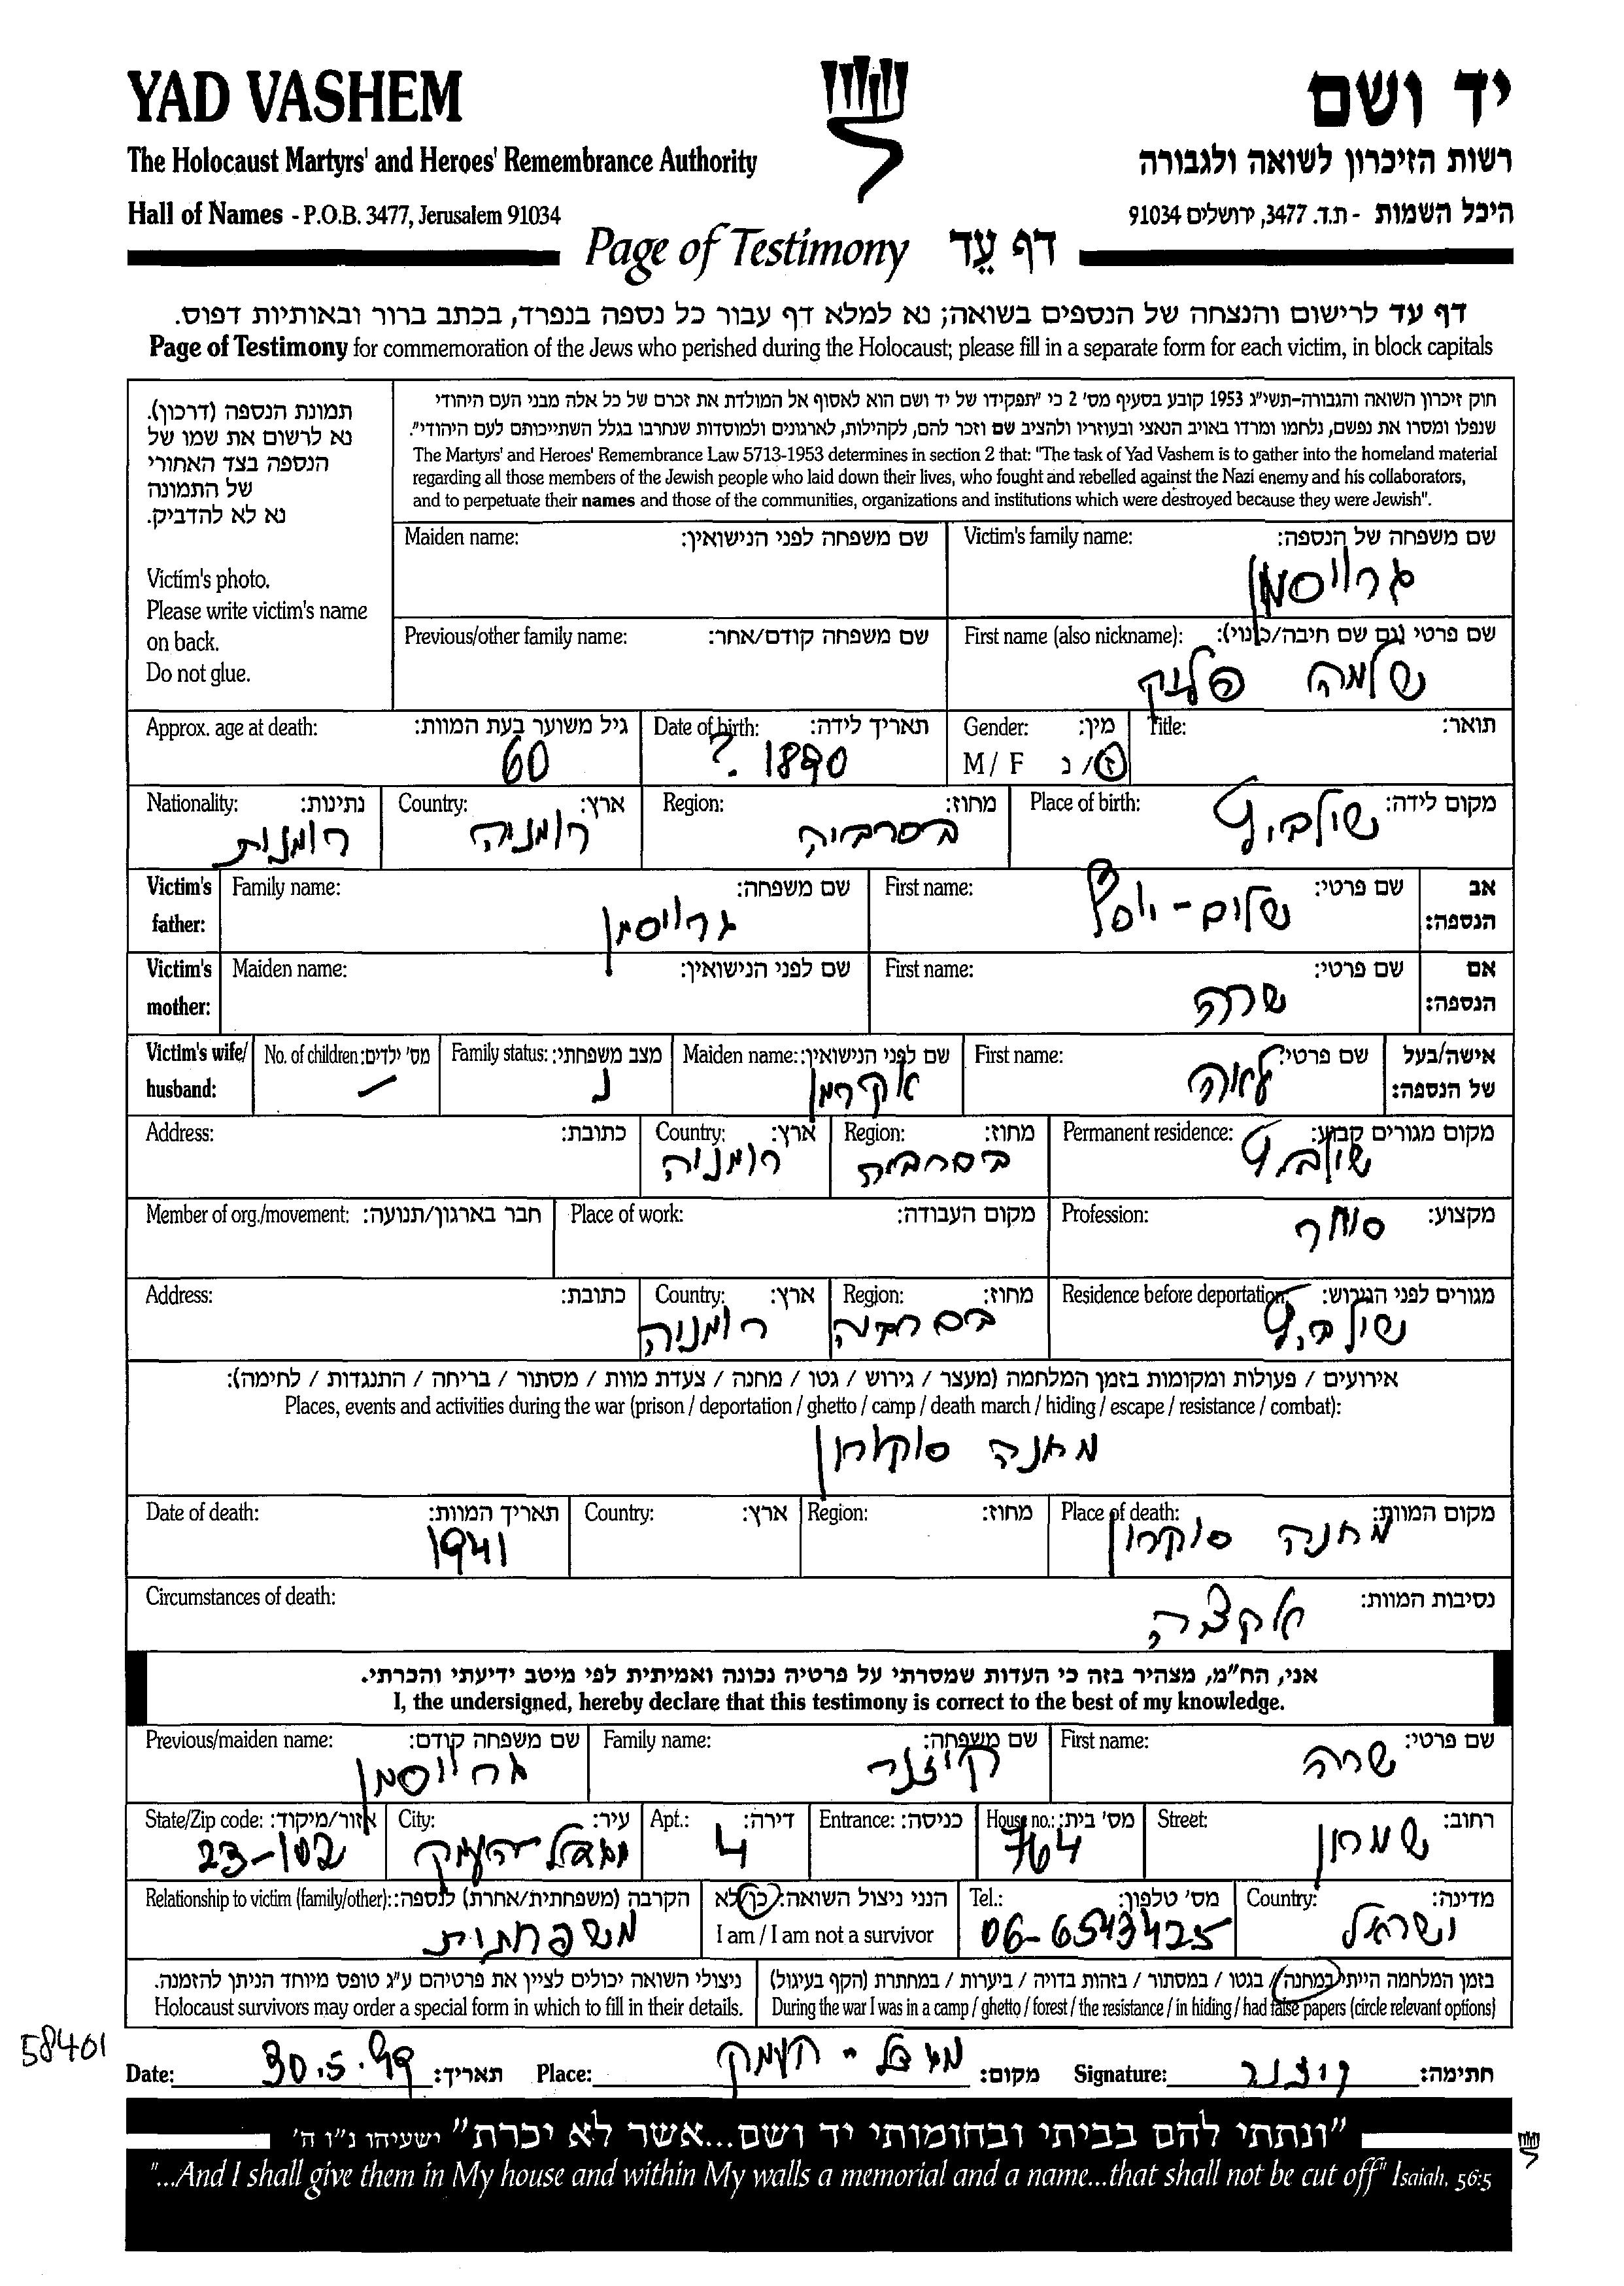 YAD VASHEM
יד ושם
The Holocaust Martyrs' and Heroes' Remembrance Authority
רשות הזיכרון לשואה ולגבורה
Hall of Names - P.O.B. 3477, Jerusalem 91034
היכל השמות - ת.ד. 3477, ירושלים 91034
Page of Testimony דף עֵד
דף עד לרישום והנצחה של הנספים בשואה; נא למלא דף עבור כל נספה בנפרד, בכתב ברור ובאותיות דפוס.
Page of Testimony for commemoration of the Jews who perished during the Holocaust; please fill in a separate form for each victim, in block capitals
תמונת הנספה (דרכון).
נא לרשום את שמו של
הנספה בצד האחורי
של התמונה
נא לא להדביק.
Victim's photo.
Please write victim's name
on back.
Do not glue.
חוק זיכרון השואה והגבורה-תשי"ג 1953 קובע בסעיף מס' 2 כי "תפקידו של יד ושם הוא לאסוף אל המולדת את זכרם של כל אלה מבני העם היהודי
שנפלו ומסרו את נפשם, נלחמו ומרדו באויב הנאצי ובעוזריו ולהציב שם וזכר להם, לקהילות, לארגונים ולמוסדות שנחרבו בגלל השתייכותם לעם היהודי".
The Martyrs' and Heroes' Remembrance Law 5713-1953 determines in section 2 that: "The task of Yad Vashem is to gather into the homeland material
regarding all those members of the Jewish people who laid down their lives, who fought and rebelled against the Nazi enemy and his collaborators,
and to perpetuate their names and those of the communities, organizations and institutions which were destroyed because they were Jewish".
שם משפחה של הנספה: Victim's family name:
גרויסמן
שם משפחה לפני הנישואין: Maiden name:
שם פרטי (גם שם חיבה/כינוי): First name (also nickname):
שלמה פליק
שם משפחה קודם/אחר: Previous/other family name:
תואר: Title:
מין: Gender:
ז/נ M / F
תאריך לידה: Date of birth:
1890 ?
גיל משוער בעת המוות: Approx. age at death:
60
מקום לידה: Place of birth:
מחוז: Region:
בסרביה
ארץ: Country:
רומניה
נתינות: Nationality:
רומנית
אב הנספה: Victim's father:
שם פרטי: First name:
שלום - יוסף
שם משפחה: Family name:
גרויסמן
אם הנספה: Victim's mother:
שם פרטי: First name:
שרה
שם לפני הנישואין: Maiden name:
אישה/בעל של הנספה: Victim's wife/ husband:
שם פרטי: First name:
לאה
שם לפני הנישואין: Maiden name:
אקרמן
מצב משפחתי: Family status:
נ
מס' ילדים: No. of children:
–
מקום מגורים קבוע: Permanent residence:
מחוז: Region:
בסרביה
ארץ: Country:
רומניה
כתובת: Address:
מקצוע: Profession:
סוחר
מקום העבודה: Place of work:
חבר בארגון/תנועה: Member of org./movement:
מגורים לפני הגירוש: Residence before deportation:
מחוז: Region:
בסרביה
ארץ: Country:
רומניה
כתובת: Address:
אירועים / פעולות ומקומות בזמן המלחמה (מעצר / גירוש / גטו / מחנה / צעדת מוות / מסתור / בריחה / התנגדות / לחימה):
Places, events and activities during the war (prison / deportation / ghetto / camp / death march / hiding / escape / resistance / combat):
מחנה סוקירון
מקום המוות: Place of death:
מחנה סוקרון
מחוז: Region:
ארץ: Country:
תאריך המוות: Date of death:
1941
נסיבות המוות: Circumstances of death:
אקציה
אני, הח"מ, מצהיר בזה כי העדות שמסרתי על פרטיה נכונה ואמיתית לפי מיטב ידיעתי והכרתי.
I, the undersigned, hereby declare that this testimony is correct to the best of my knowledge.
שם פרטי: First name:
שרה
שם משפחה: Family name:
קיזנר
שם משפחה קודם: Previous/maiden name:
גרויסמן
רחוב: Street:
שמרון
מס' בית: House no.:
764
כניסה: Entrance:
דירה: Apt.:
4
עיר: City:
מגדל-העמק
אזור/מיקוד: State/Zip code:
23-102
מדינה: Country:
ישראל
מס' טלפון: Tel.:
06-6543425
הנני ניצול השואה: כן/לא
I am / I am not a survivor
הקרבה (משפחתית/אחרת) לנספה: Relationship to victim (family/other):
משפחתית
בזמן המלחמה הייתי במחנה / בגטו / במסתור / בזהות בדויה / ביערות / במחתרת (הקף בעיגול)
During the war I was in a camp / ghetto / forest / the resistance / in hiding / had false papers (circle relevant options)
ניצולי השואה יכולים לציין את פרטיהם ע"ג טופס מיוחד הניתן להזמנה.
Holocaust survivors may order a special form in which to fill in their details.
58401
חתימה: Signature:
מקום: מגדל - העמק Place:
תאריך: 30.5.99 Date:
"ונתתי להם בביתי ובחומותי יד ושם...אשר לא יכרת" ישעיהו נ"ו ה'
"...And I shall give them in My house and within My walls a memorial and a name...that shall not be cut off" Isaiah, 56:5